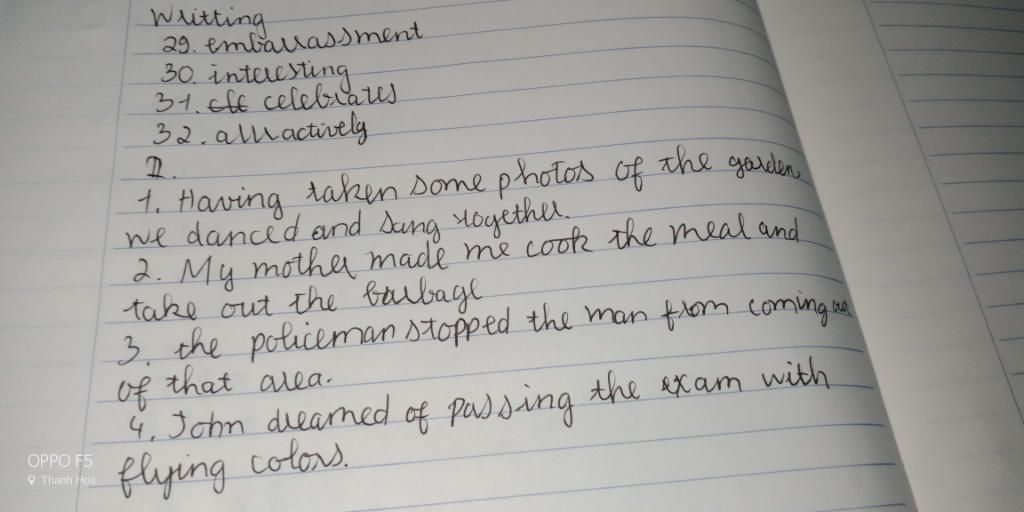 Writting
29. embarrassment
30. interesting
31. celebrates
32. attractively
I.
1. Having taken some photos of the garden,
we danced and sang together.
2. My mother made me cook the meal and
take out the
3. the policeman stopped the man from coming out
of that area.
4. John dreamed of passing the exam with
flying colors.
OPPO F5
Thanh Hoá